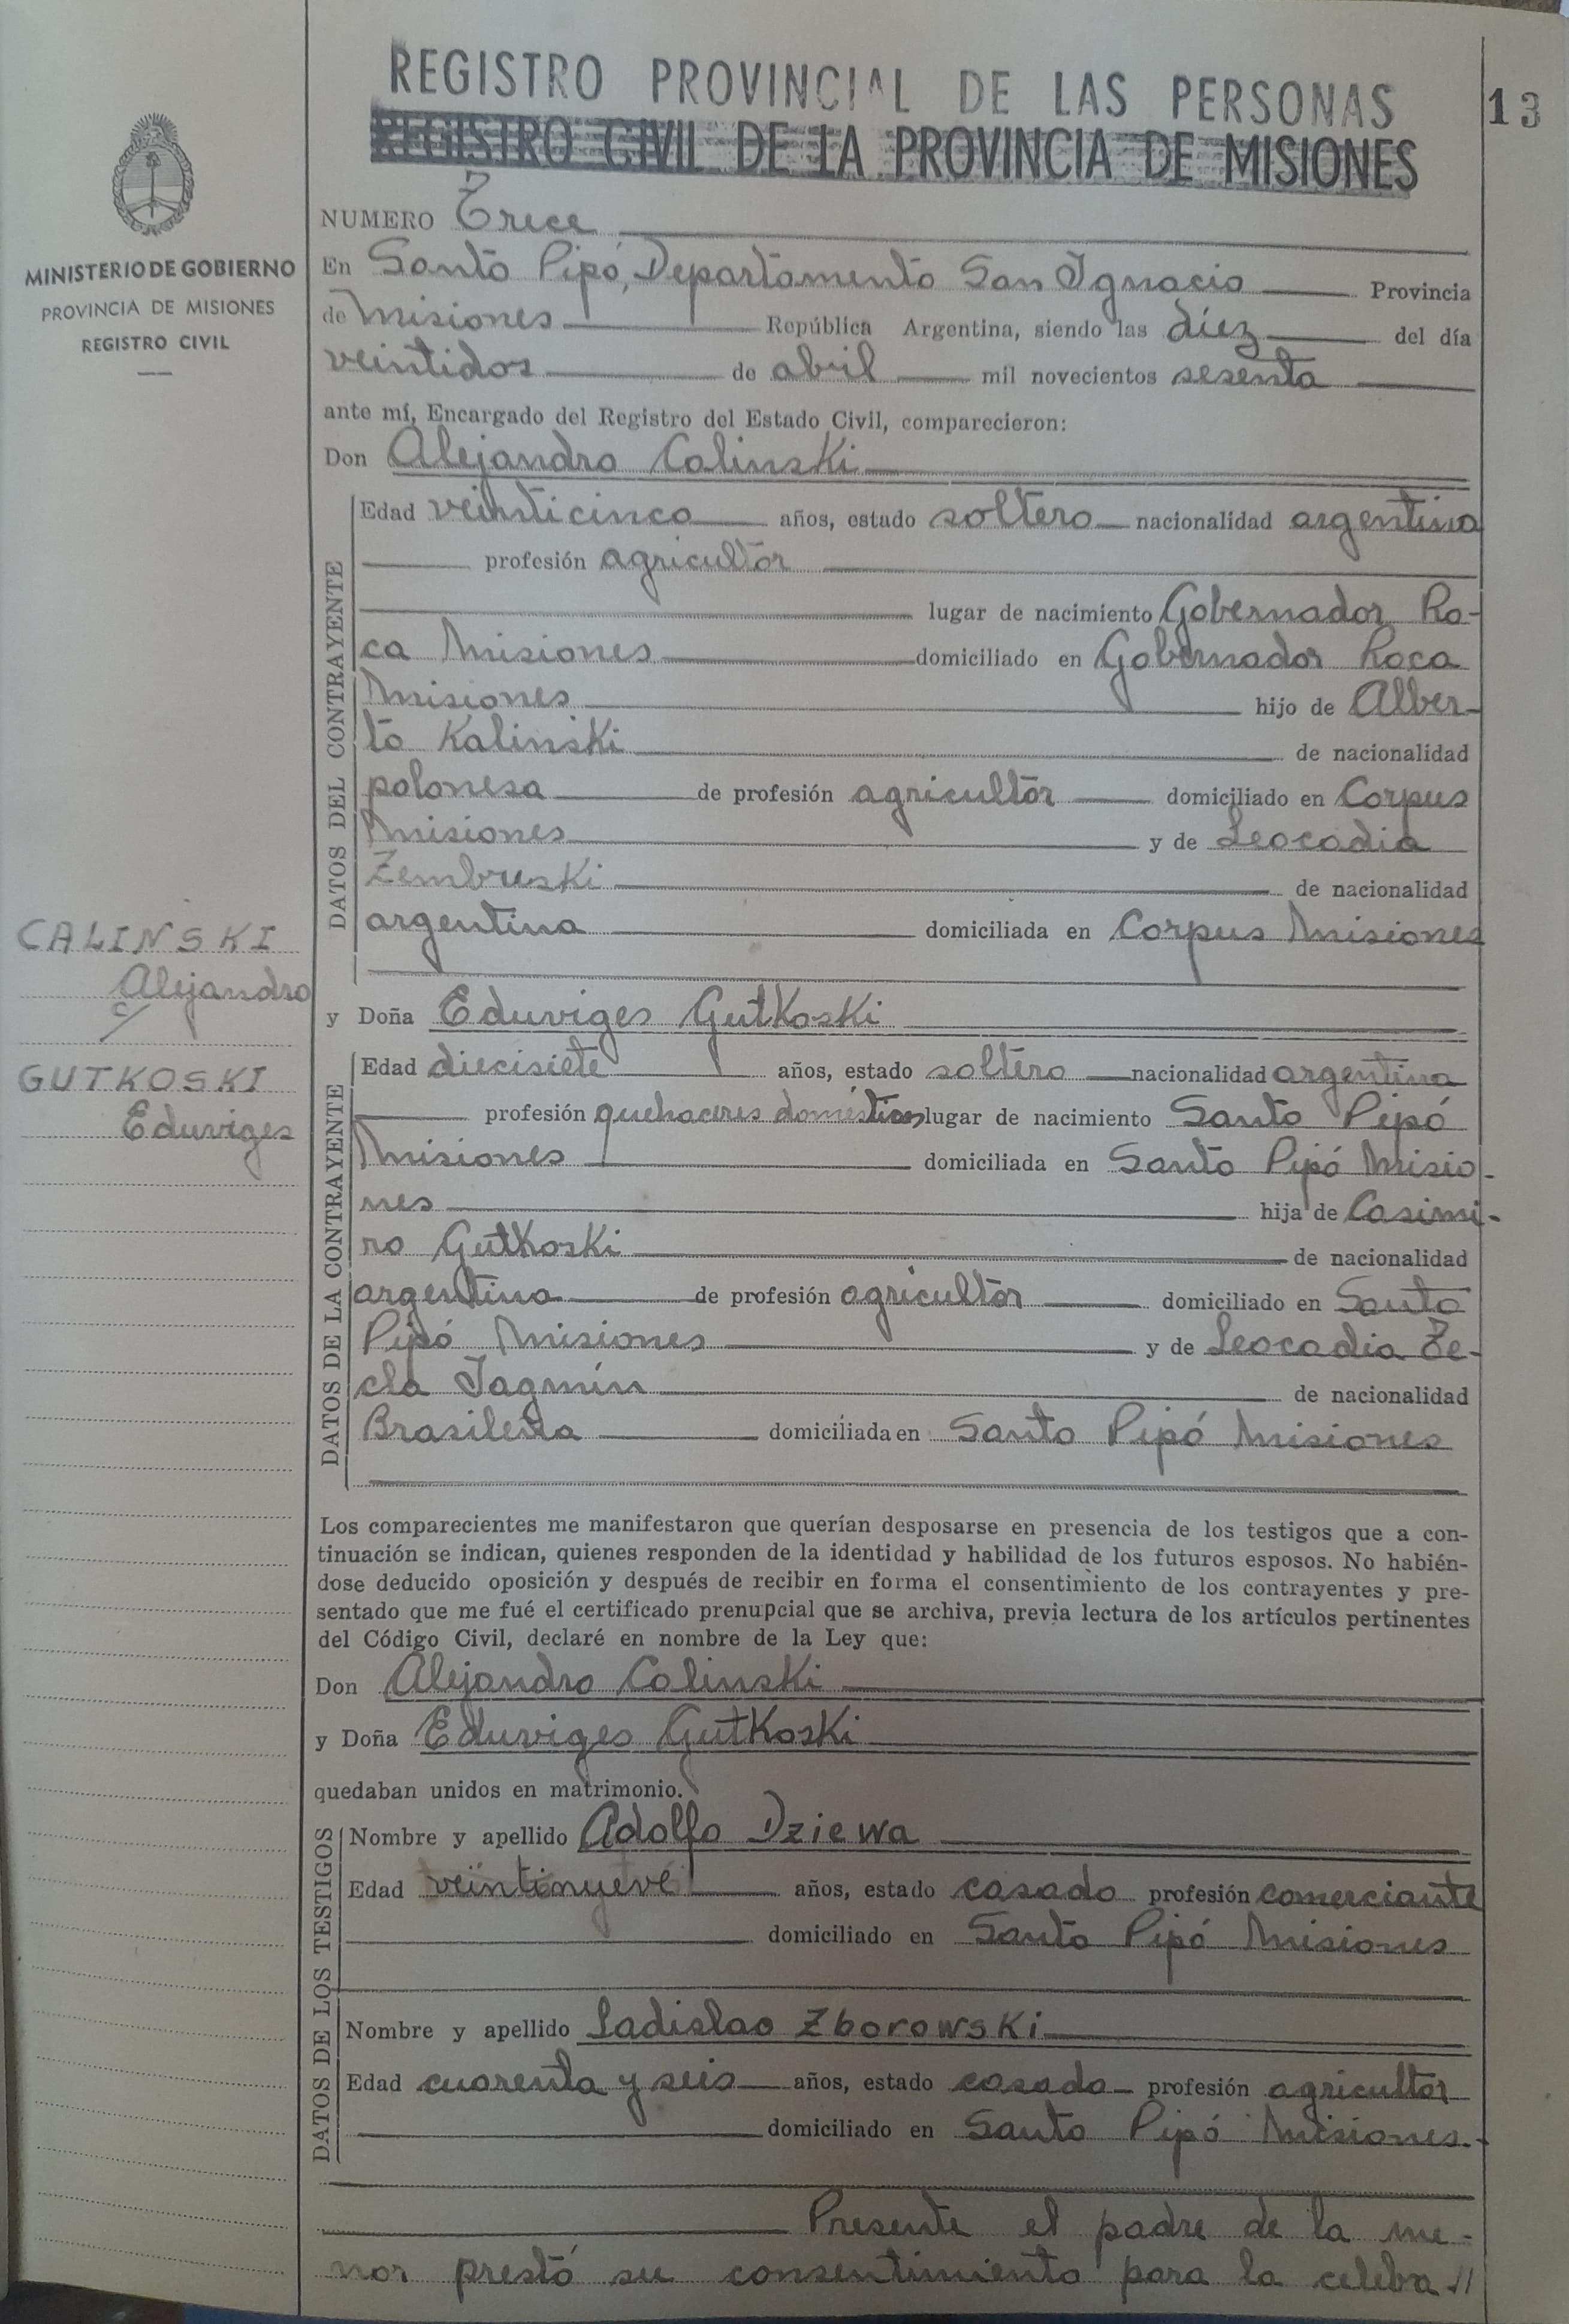 REGISTRO PROVINCIAL DE LAS PERSONAS
REGISTRO CIVIL DE LA PROVINCIA DE MISIONES
13
MINISTERIO DE GOBIERNO
PROVINCIA DE MISIONES
REGISTRO CIVIL
NUMERO Trece
En Santo Pipó, Departamento San Ignacio Provincia
de Misiones República Argentina, siendo las diez del día
veintidos de abril mil novecientos sesenta
ante mí, Encargado del Registro del Estado Civil, comparecieron:
Don Alejandro Calinski
DATOS DEL CONTRAYENTE
Edad veinticinco años, estado soltero nacionalidad argentina
profesión agricultor
lugar de nacimiento Gobernador Ro-
ca Misiones domiciliado en Gobernador Roca
Misiones hijo de Alber-
to Kalinski de nacionalidad
polonesa de profesión agricultor domiciliado en Corpus
Misiones y de Leocadia
Zembruski de nacionalidad
argentina domiciliada en Corpus Misiones
CALINSKI
Alejandro
c/
GUTKOSKI
Eduviges
y Doña Eduviges Gutkoski
DATOS DE LA CONTRAYENTE
Edad diecisiete años, estado soltero nacionalidad argentina
profesión quehaceres domésticos lugar de nacimiento Santo Pipó
Misiones domiciliada en Santo Pipó Misio-
nes hija de Casimi-
ro Gutkoski de nacionalidad
argentina de profesión agricultor domiciliado en Santo
Pipó Misiones y de Leocadia Te-
cla Jagmin de nacionalidad
Brasileña domiciliada en Santo Pipó Misiones
Los comparecientes me manifestaron que querían desposarse en presencia de los testigos que a con-
tinuación se indican, quienes responden de la identidad y habilidad de los futuros esposos. No habién-
dose deducido oposición y después de recibir en forma el consentimiento de los contrayentes y pre-
sentado que me fué el certificado prenupcial que se archiva, previa lectura de los artículos pertinentes
del Código Civil, declaré en nombre de la Ley que:
Don Alejandro Calinski
y Doña Eduviges Gutkoski
quedaban unidos en matrimonio.
DATOS DE LOS TESTIGOS
Nombre y apellido Adolfo Dziewa
Edad veintinueve años, estado casado profesión comerciante
domiciliado en Santo Pipó Misiones
Nombre y apellido Ladislao Zborowski
Edad cuarenta y seis años, estado casado profesión agricultor
domiciliado en Santo Pipó Misiones.-
Presente el padre de la me-
nor prestó su consentimiento para la celebra //